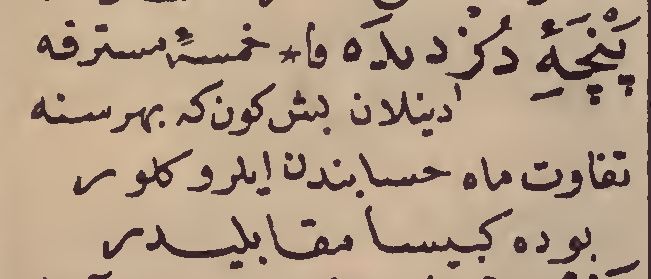 پَنْچَهِٔ دُزْدیدَه فا* خمسهٔ مسترقه
دینلان بش کون که بهر سنه
تفاوت ماه حسابندن ایلرو کلور
بو ده کبیسا مقابلیدر